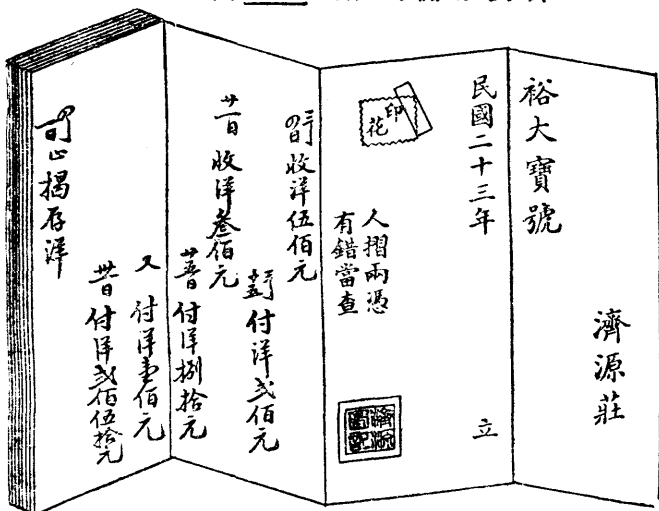 裕大寶號
濟源莊
民國二十三年
立
印花
人摺兩憑
有錯當查
收洋伍佰元
付洋弍佰元
廿一日 收洋叁佰元
付洋捌拾元
又 付洋壹佰元
付洋弍佰伍拾元
止揭存洋